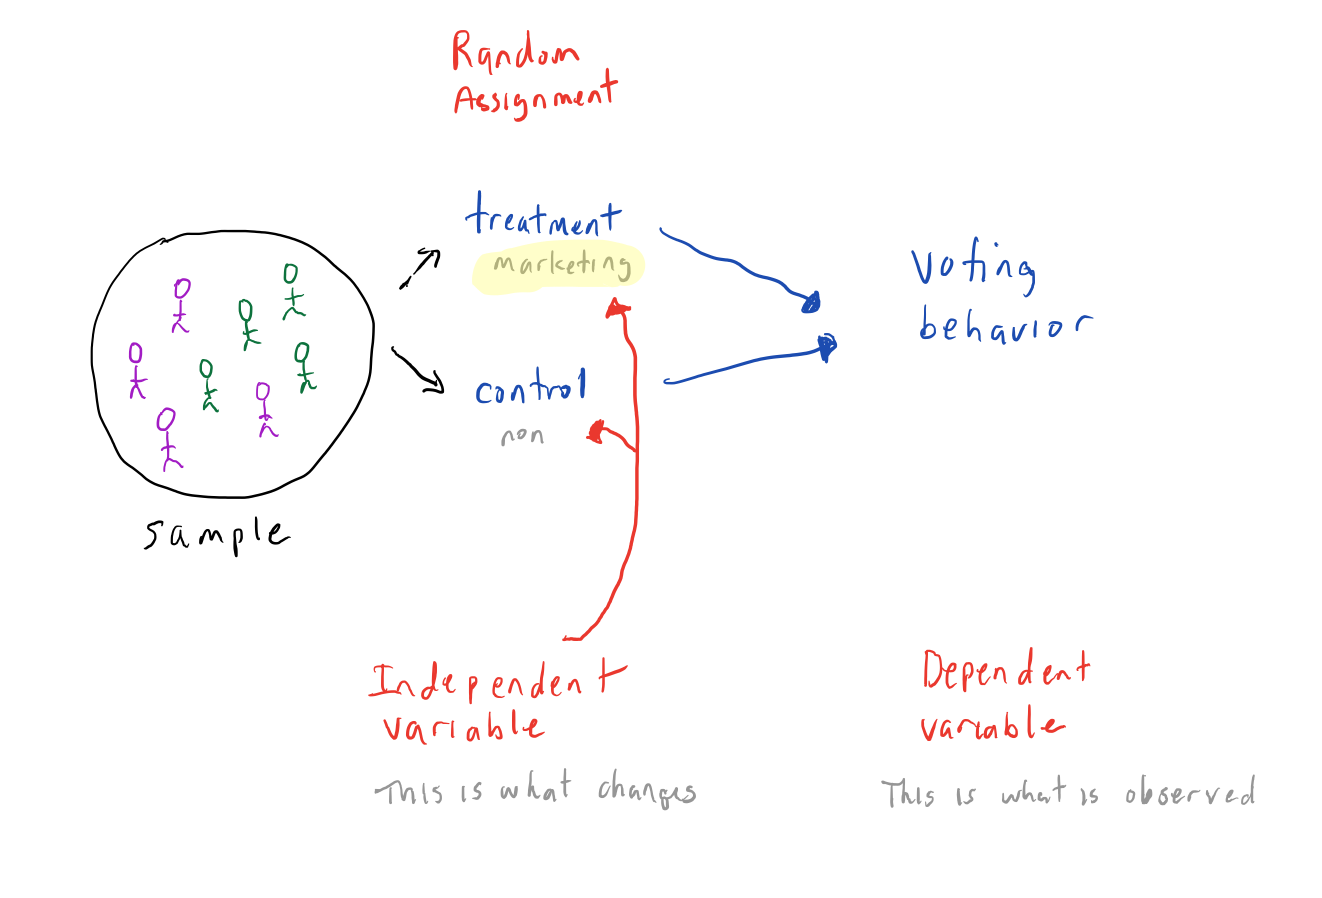 Random
Assignment
treatment
marketing
control
non
Voting
behavior
sample
Independent
variable
This is what changes
Dependent
variable
This is what is observed